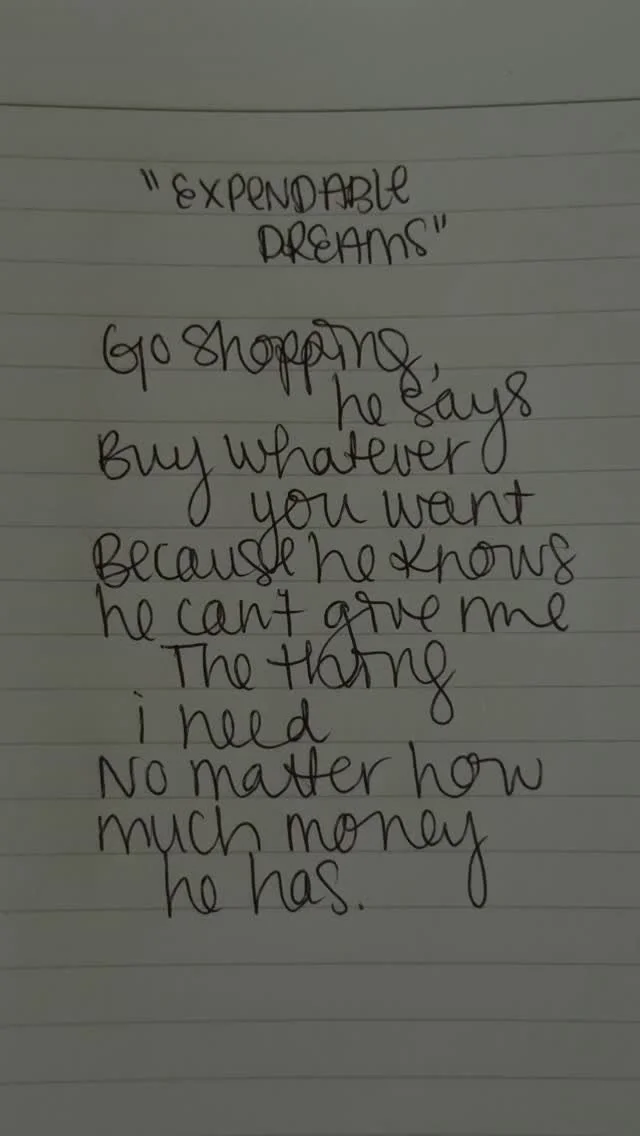 "EXPENDABLE
DREAMS"
Go shopping,
he says
Buy whatever
you want
Because he knows
he can't give me
The thing
i need
No matter how
much money
he has.